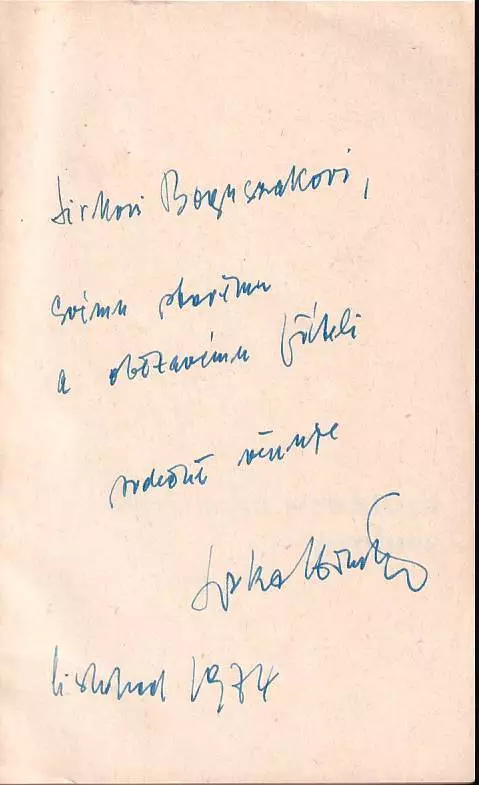 Jirkovi Boguszakovi,
svému starému
a obětavému příteli
srdečně věnuje
listopad 1974